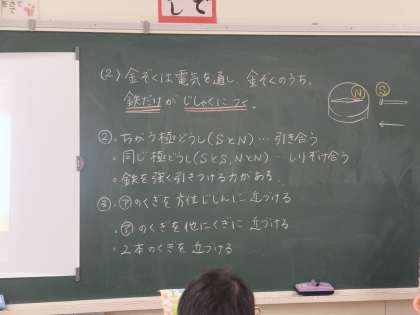 して
(2) 金ぞくは電気を通し、金ぞくのうち、
鉄だけがじしゃくにつく。
N
S
②・ちがう極どうし(SとN)…引き合う
・同じ極どうし(SとS,NとN)…しりぞけ合う
・鉄を強く引きつける力がある
③・アのくぎを方位じしんに近づける
・アのくぎを他にくぎに近づける
・2本のくぎを近づける